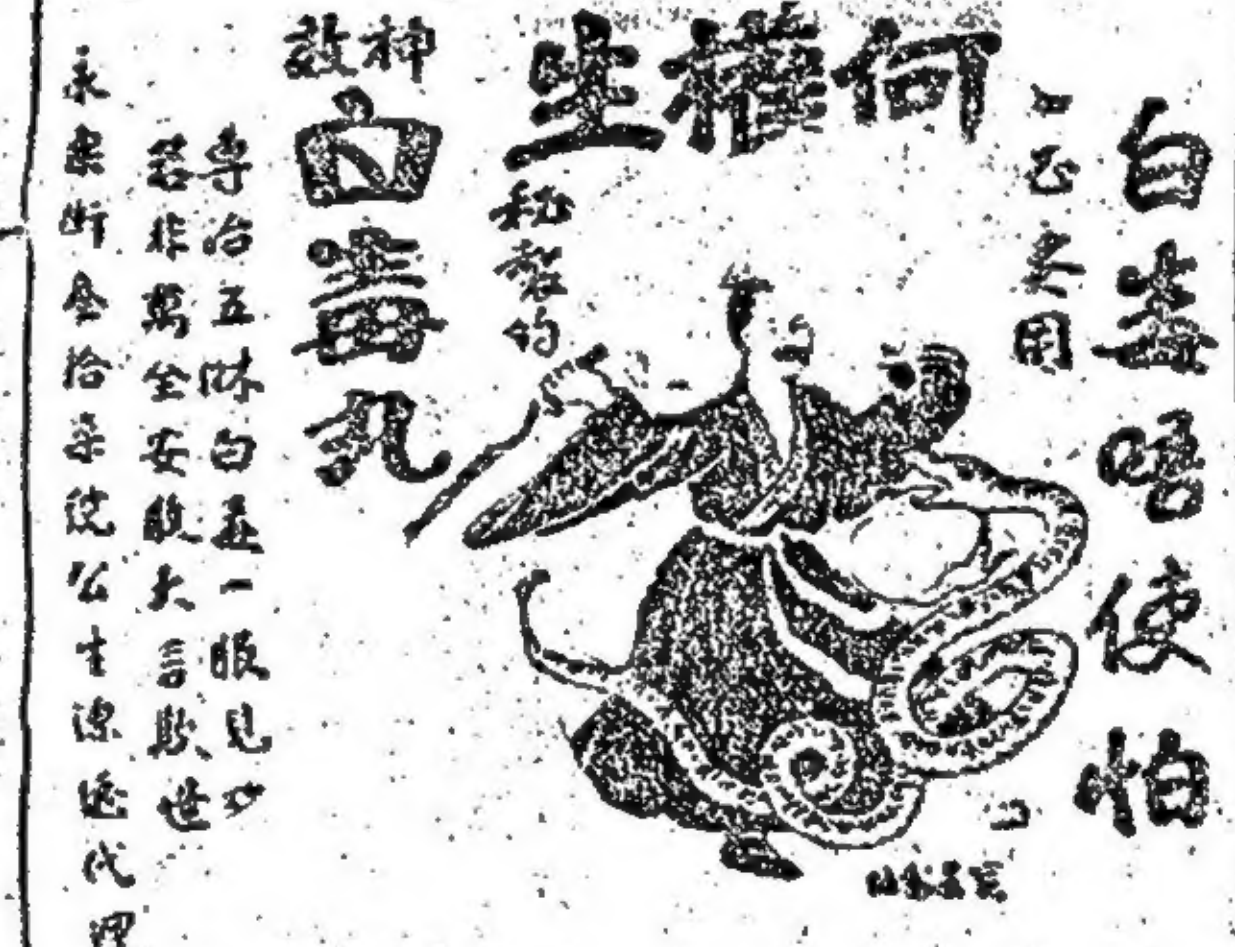 白毒唔使怕
用
何權生
秘製的
神效
白毒丸
專治五淋白一服見
若非萬全安敢大言欺世
永樂街拾柒號公生源代理